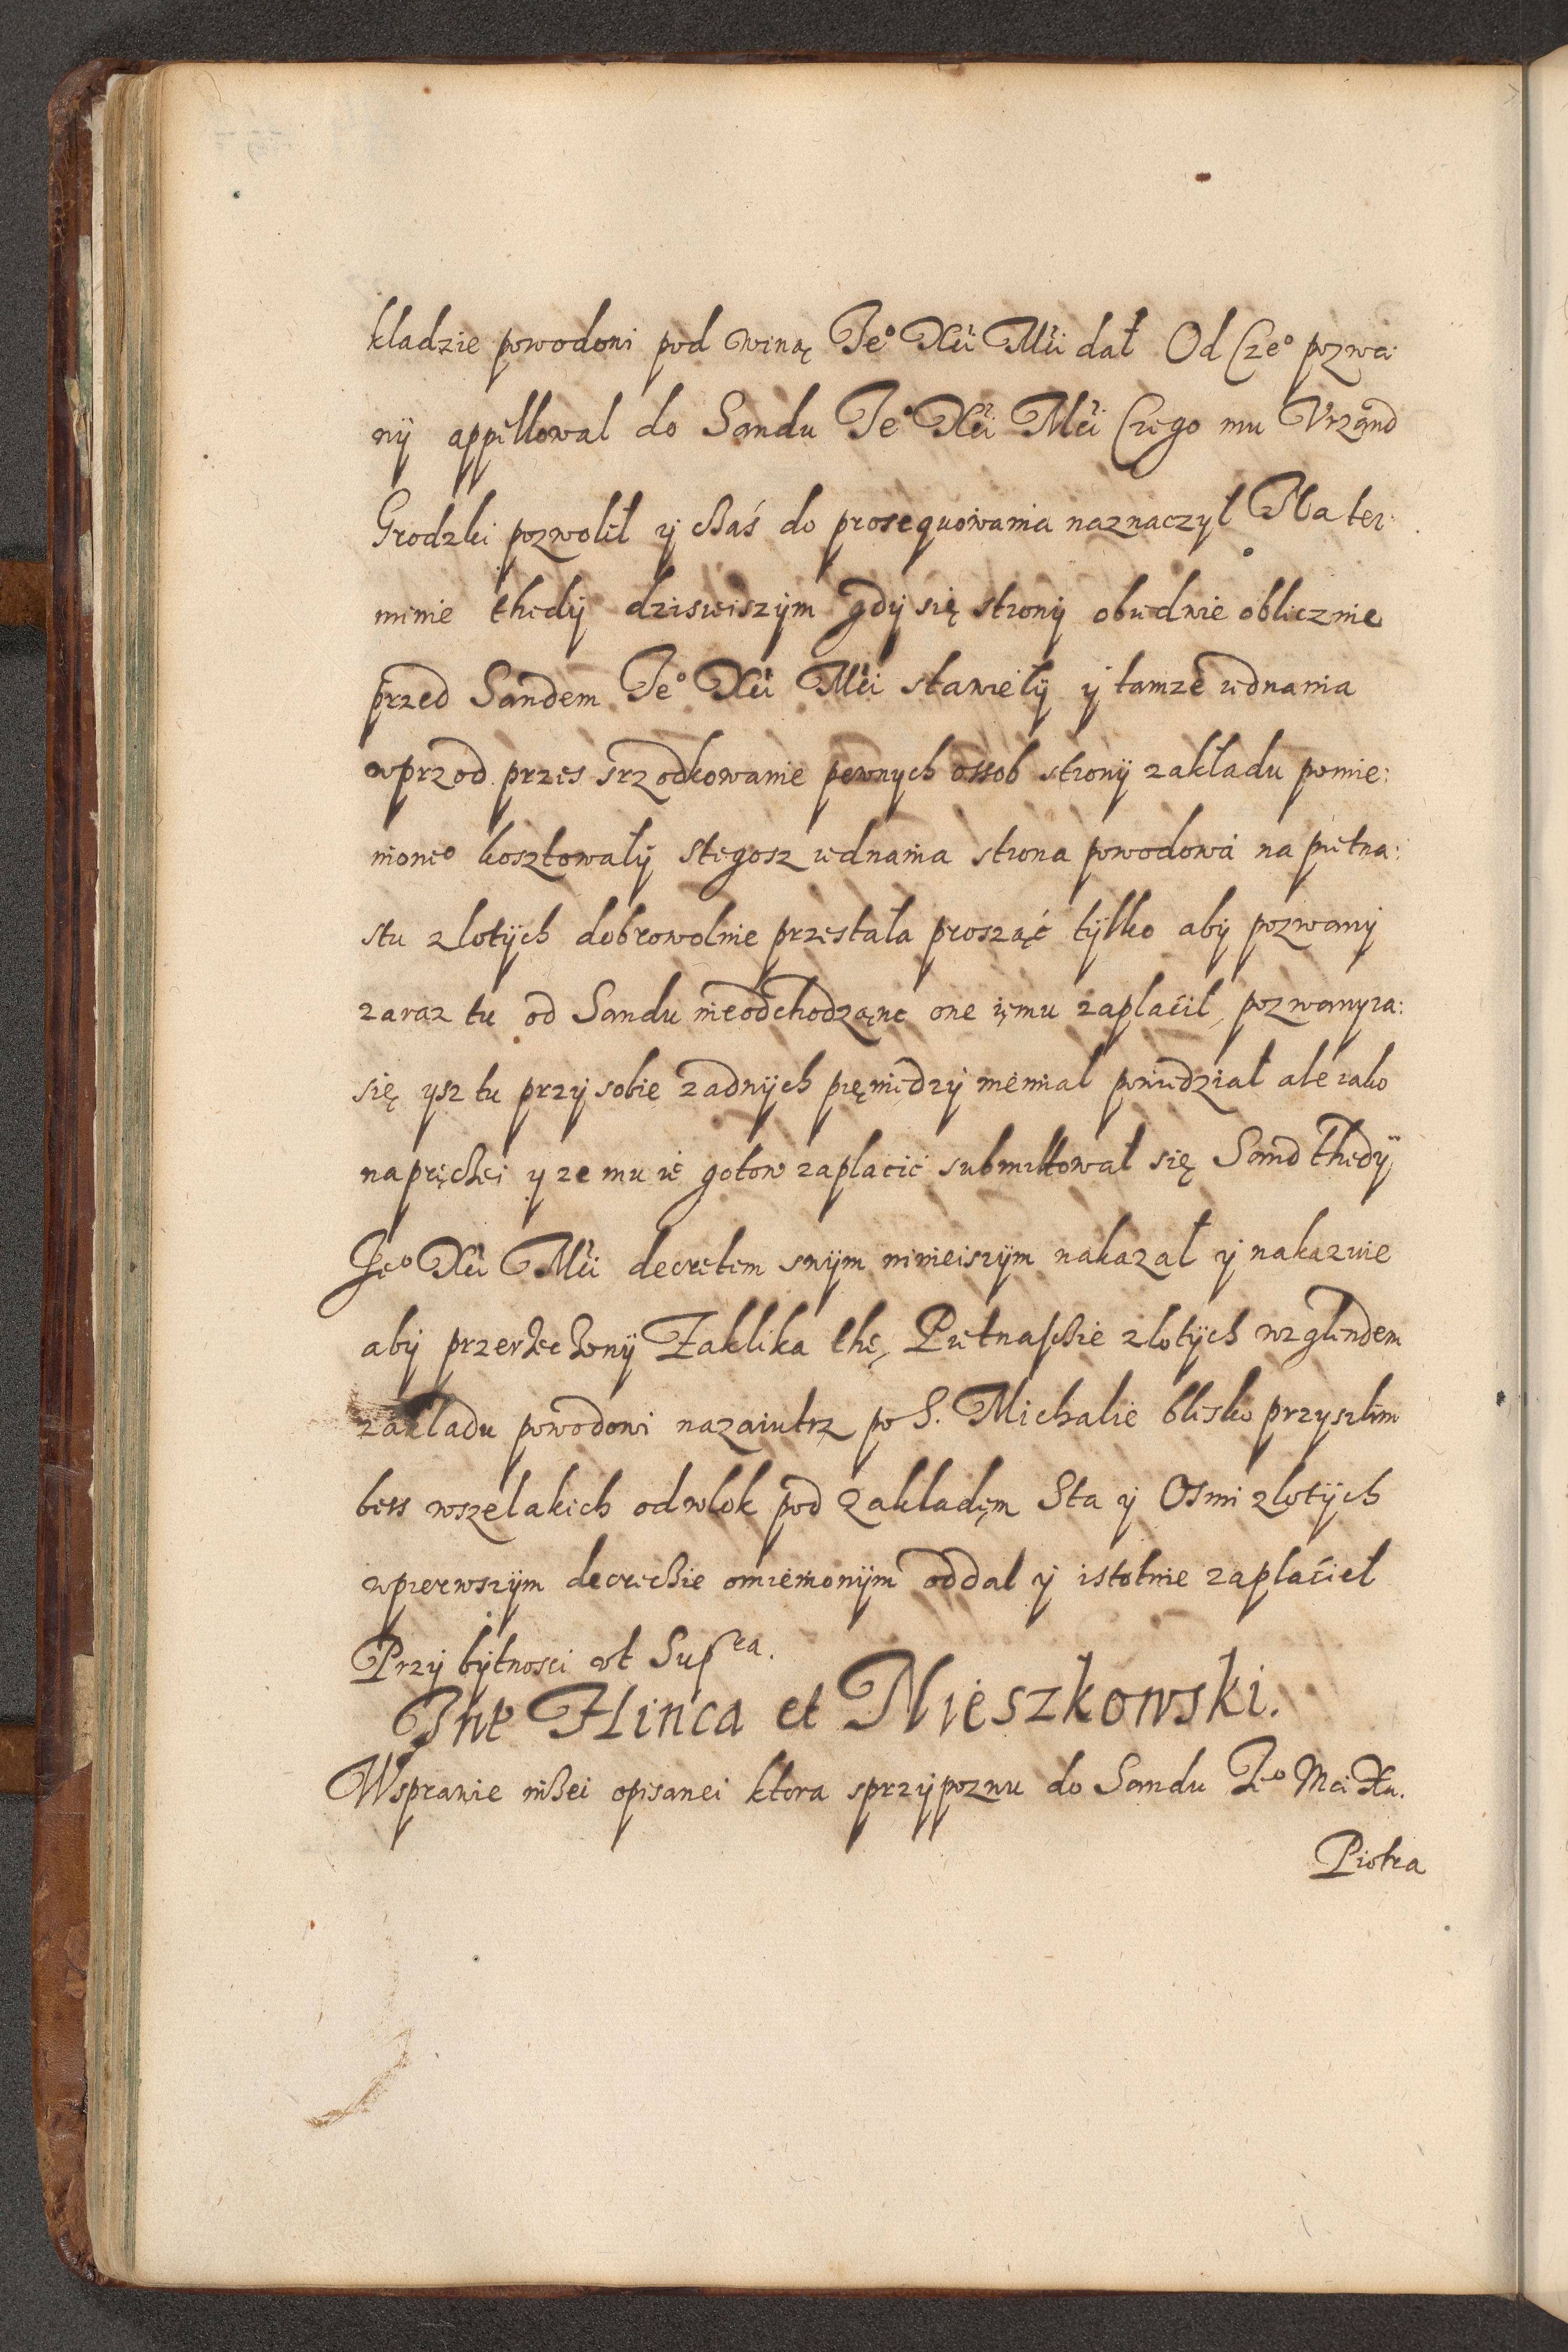 kladzie powodowi pod winą Je° Xci Mci dał Od Cze° pozwa:
ny appellowal do Sandu Je° Xci Mci Czego mu Vrzand
Grodzki pozwolił y cżaś do prosequowania naznaczył Na ter:
minie thedy dzisieiszym gdy się strony obiedwie oblicznie
przed Sandem Je° Xci Mci stawiely y tamze iednania
wprzod przes srzodkowanie pewnych ossob strony zakładu pomie:
nione° kosztowały Stegosz iednania strona powodowa na pietna:
stu zlotych dobrowolnie przestała prosząc tylko aby pozwany
zaraz tu od Sandu nieodchodząnc one iemu zaplacil, pozwany za:
się ysz tu przy sobie zadnych pięniędzy niemial powiedział ale iako
napręcei y ze mu ie gotow zaplacic submittował się Sand thedy
Je° Xci Mci decretem swym ninieiszym nakazał y nakazuie
aby przerzeczony Zaklika the Pietnascie zlotych wzglendem
zakladu powodowi nazaiutrz po S. Michalie blisko przyszlem
bess wszelakich odwlok pod Zakladem Sta y Osmi zlotych
wpierwszym decrecie omienionym oddal y istotnie zaplacieł
Przy bytnosci vt Supra.
Int Hinca et Nieszkowski.
Wsprawie niżei opisanei ktora sprzypozwu do Sandu Je° Mci Xa.
Piotra